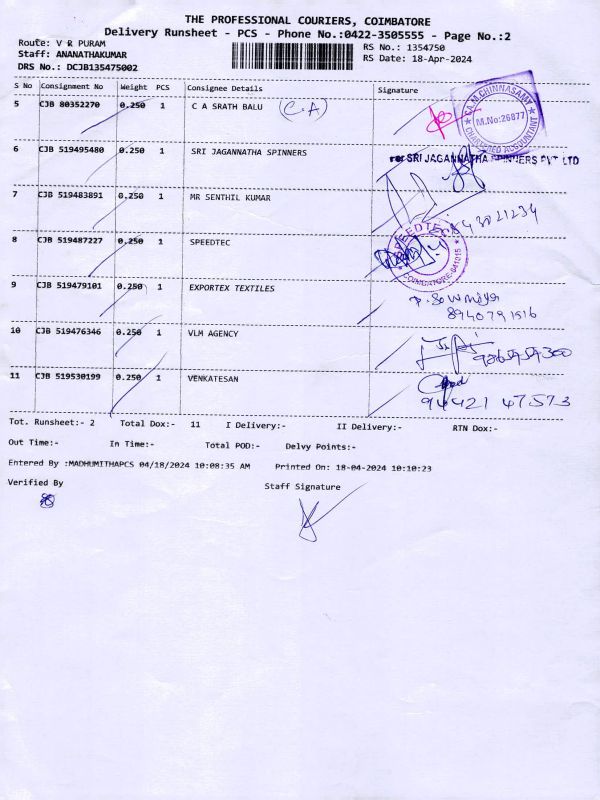 THE PROFESSIONAL COURIERS, COIMBATORE
Delivery Runsheet - PCS - Phone No.:0422-3505555 - Page No.:2
Route: V R PURAM RS No.: 1354750
Staff: ANANATHAKUMAR RS Date: 18-Apr-2024
DRS No.: DCJB135475002
S No Consignment No Weight PCS Consignee Details Signature
5 CJB 80352270 0.250 1 C A SRATH BALU (C.A)
CA.M.CHINNASAMY
M.No:26877
CHARTERED ACCOUNTANT
6 CJB 519495480 0.250 1 SRI JAGANNATHA SPINNERS
For SRI JAGANNATHA SPINNERS PVT LTD
7 CJB 519483891 0.250 1 MR SENTHIL KUMAR
8 CJB 519487227 0.250 1 SPEEDTEC
SPEEDTEC
COIMBATORE-641015
9 CJB 519479101 0.250 1 EXPORTEX TEXTILES
P. Sowmiya
8940791516
10 CJB 519476346 0.250 1 VLM AGENCY
11 CJB 519530199 0.250 1 VENKATESAN
94421 47573
Tot. Runsheet:- 2 Total Dox:- 11 I Delivery:- II Delivery:- RTN Dox:-
Out Time:- In Time:- Total POD:- Delvy Points:-
Entered By :MADHUMITHAPCS 04/18/2024 10:08:35 AM Printed On: 18-04-2024 10:10:23
Verified By Staff Signature